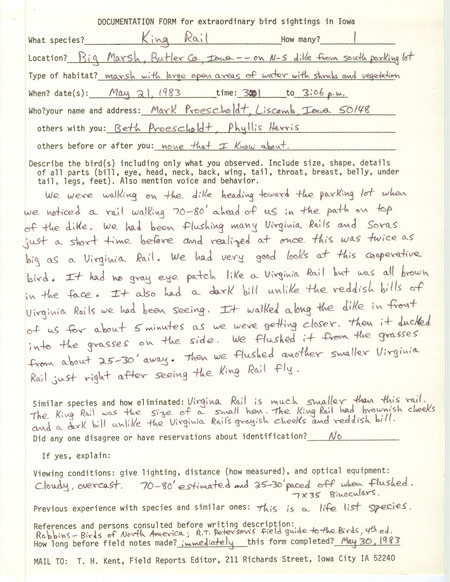 DOCUMENTATION FORM for extraordinary bird sightings in Iowa
What species? King Rail How many? 1
Location? Big Marsh, Butler Co. Iowa -- on N-S dike from south parking lot
Type of habitat? marsh with large open areas of water with shrubs and vegetation
When? date(s): May 21, 1983 time: 3:01 to 3:06 p.m.
Who? your name and address: Mark Proescholdt, Liscomb, Iowa 50148
others with you: Beth Proescholdt, Phyllis Harris
others before or after you: none that I know about.
Describe the bird(s) including only what you observed. Include size, shape, details
of all parts (bill, eye, head, neck, back, wing, tail, throat, breast, belly, under
tail, legs, feet). Also mention voice and behavior.
We were walking on the dike heading toward the parking lot when
we noticed a rail walking 70-80' ahead of us in the path on top
of the dike. We had been flushing many Virginia Rails and Soras
just a short time before and realized at once this was twice as
big as a Virginia Rail. We had very good looks at this cooperative
bird. It had no gray eye patch like a Virginia Rail but was all brown
in the face. It also had a dark bill unlike the reddish bills of
Virginia Rails we had been seeing. It walked along the dike in front
of us for about 5 minutes as we were getting closer. Then it ducked
into the grasses on the side. We flushed it from the grasses
from about 25-30' away. Then we flushed another smaller Virginia
Rail just right after seeing the King Rail fly.
Similar species and how eliminated: Virginia Rail is much smaller than this rail.
The King Rail was the size of a small hen. The King Rail had brownish cheeks
and a dark bill unlike the Virginia Rail's grayish cheeks and reddish bill.
Did any one disagree or have reservations about identification? No
If yes, explain:
Viewing conditions: give lighting, distance (how measured), and optical equipment:
Cloudy, overcast. 70-80' estimated and 25-30' paced off when flushed.
7x35 Binoculars.
Previous experience with species and similar ones: This is a life list species.
References and persons consulted before writing description:
Robbins - Birds of North America; R.T. Peterson's field guide to the Birds, 4th ed.
How long before field notes made? immediately this form completed? May 30, 1983
MAIL TO: T. H. Kent, Field Reports Editor, 211 Richards Street, Iowa City IA 52240